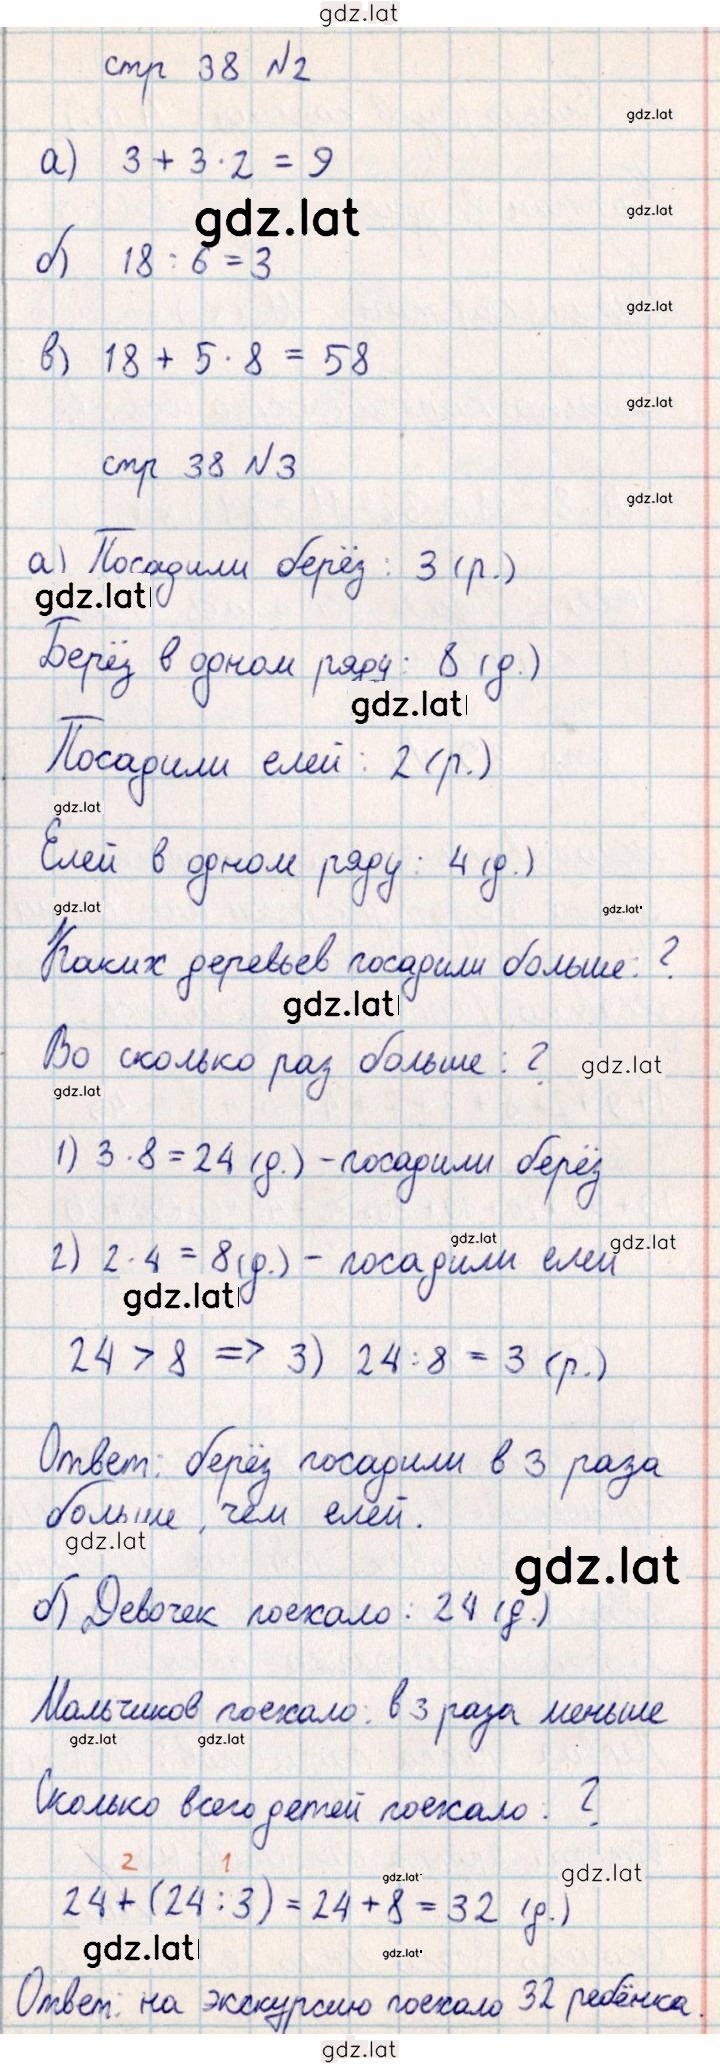 gdz.lat
стр 38 №2
gdz.lat
а) 3 + 3 · 2 = 9
gdz.lat
gdz.lat
б) 18 : 6 = 3
gdz.lat
в) 18 + 5 · 8 = 58
gdz.lat
стр 38 №3
gdz.lat
а) Посадили берёз: 3 (р.)
gdz.lat
Берёз в одном ряду: 8 (д.)
gdz.lat
Посадили елей: 2 (р.)
gdz.lat
Елей в одном ряду: 4 (д.)
gdz.lat gdz.lat
Каких деревьев посадили больше: ?
gdz.lat
Во сколько раз больше: ? gdz.lat
gdz.lat
1) 3 · 8 = 24 (д.) - посадили берёз
gdz.lat gdz.lat
2) 2 · 4 = 8 (д.) - посадили елей
gdz.lat
24 > 8 => 3) 24 : 8 = 3 (р.)
Ответ: берёз посадили в 3 раза
больше, чем елей.
gdz.lat
gdz.lat
б) Девочек поехало: 24 (д.)
Мальчиков поехало: в 3 раза меньше
gdz.lat gdz.lat
Сколько всего детей поехало: ?
2 1
gdz.lat gdz.lat
24 + (24 : 3) = 24 + 8 = 32 (д.)
gdz.lat gdz.lat
Ответ: на экскурсию поехало 32 ребёнка.
gdz.lat